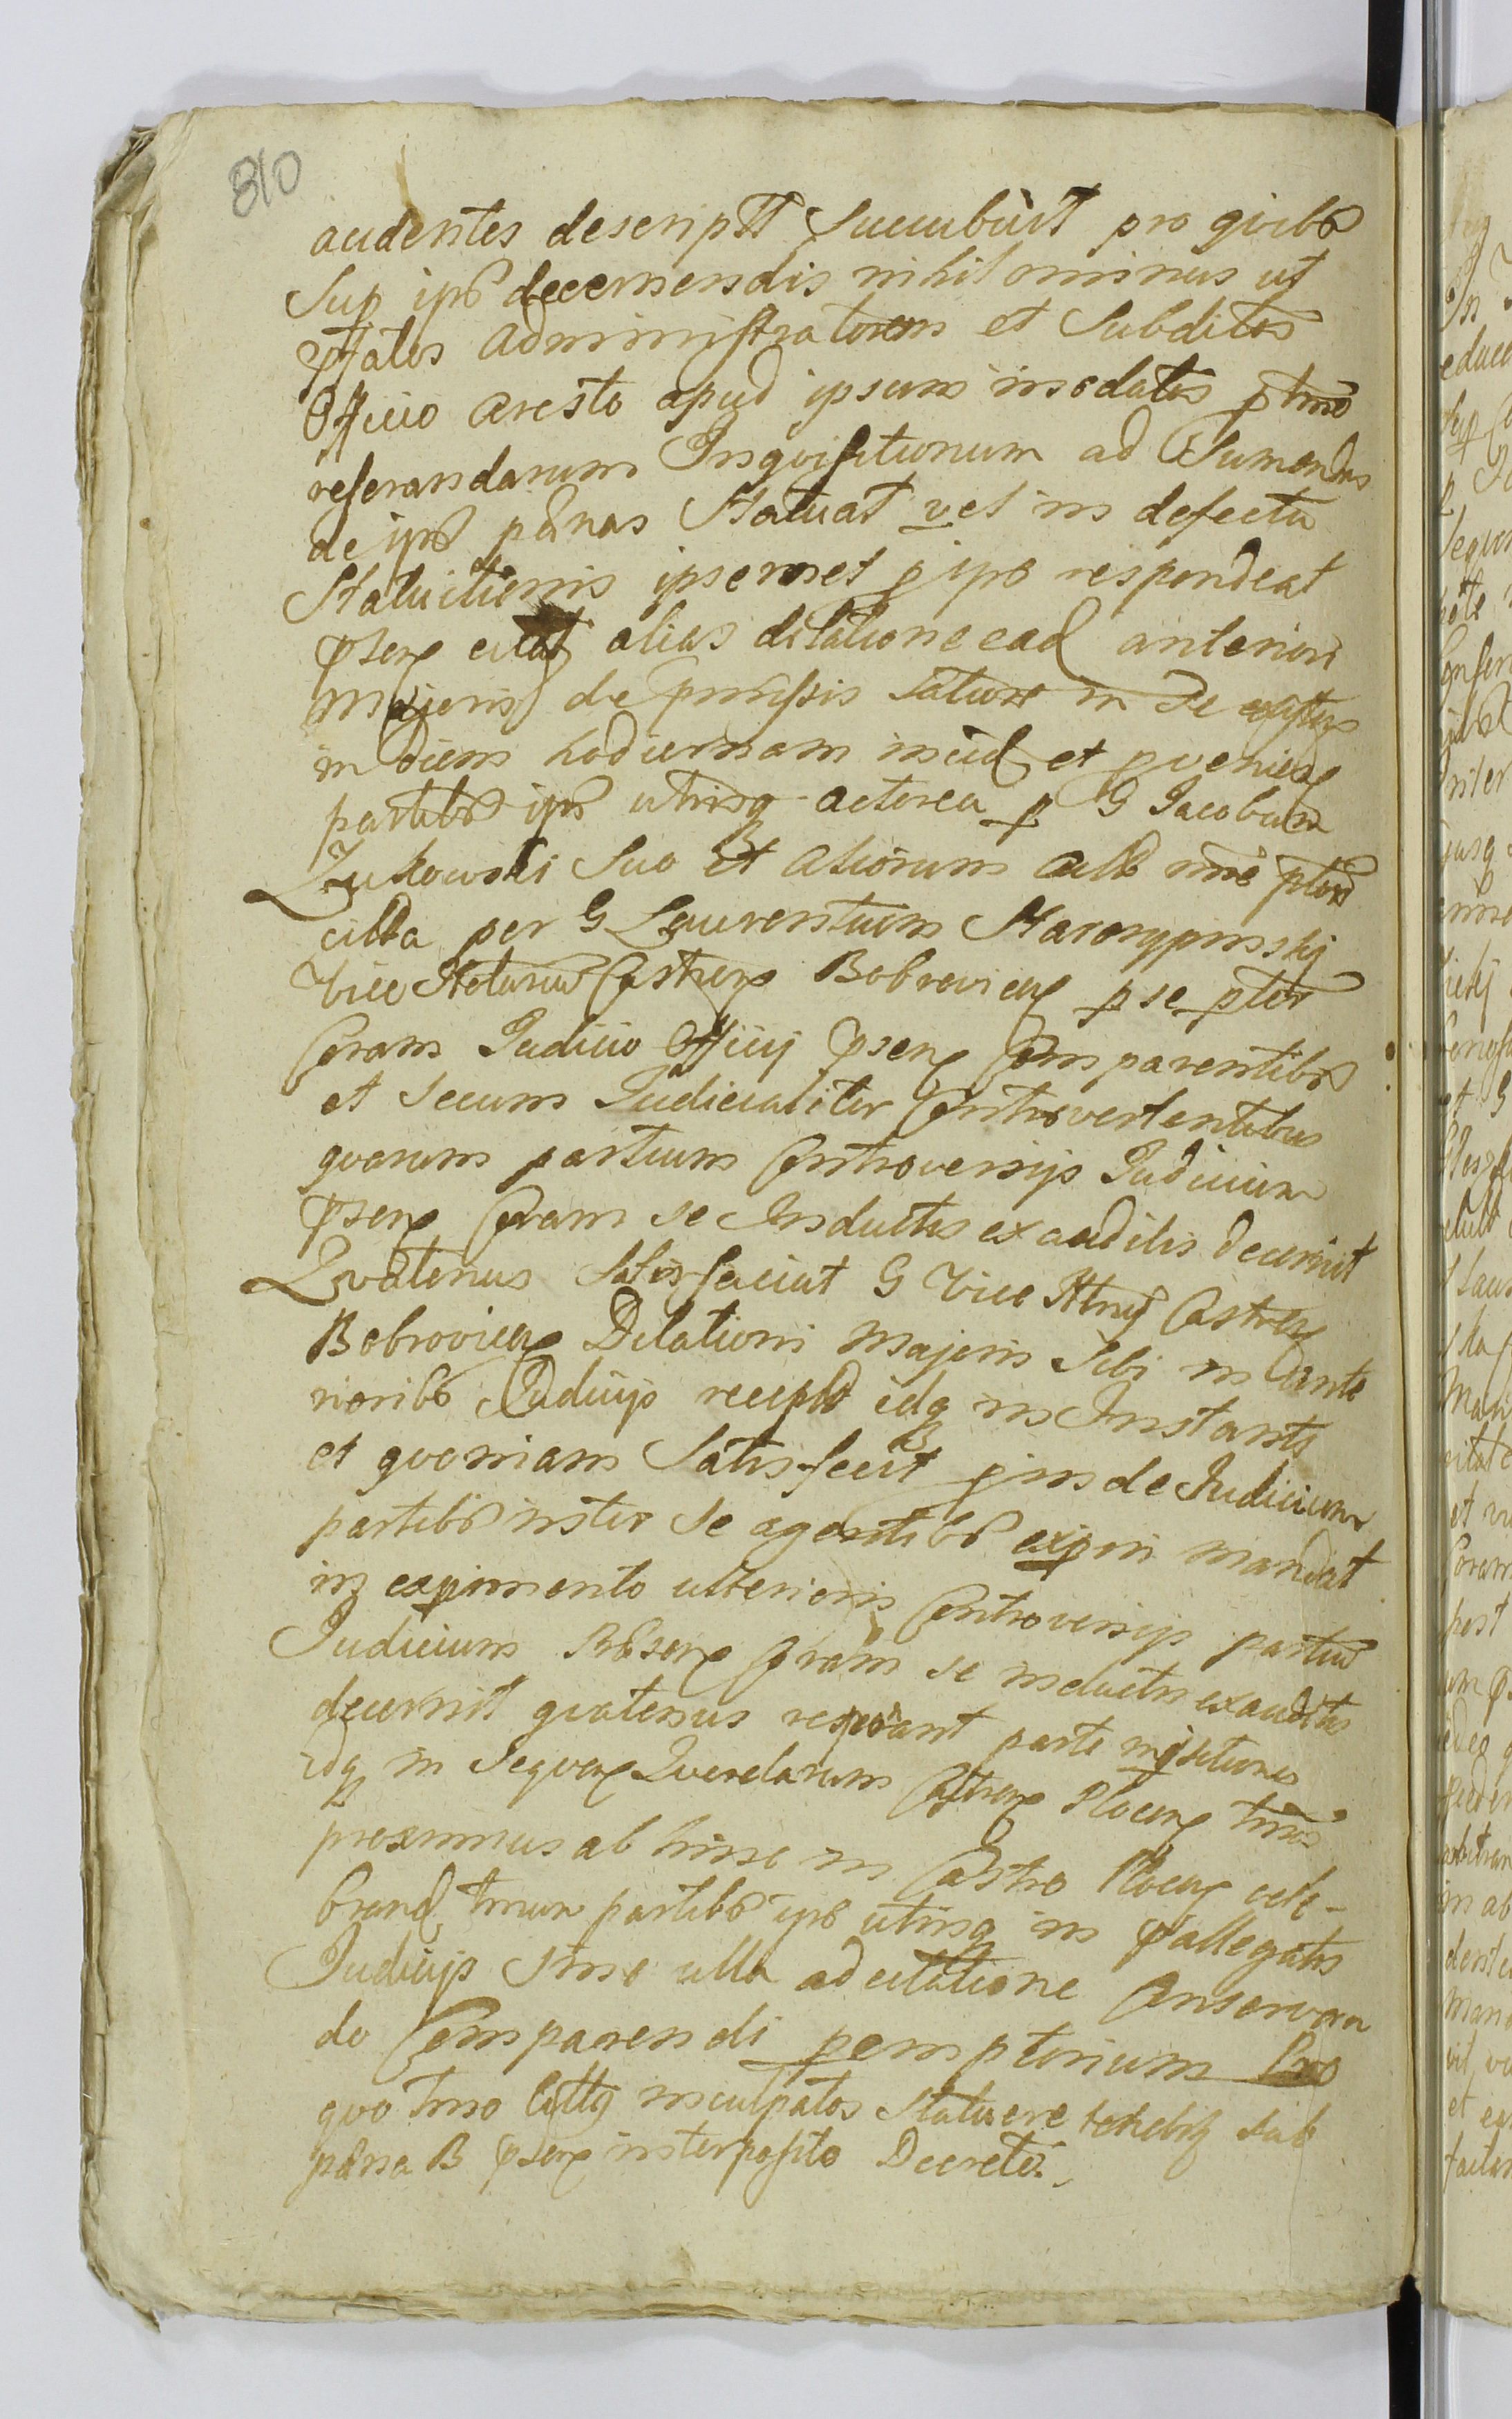 810
audentes descriptt Succubuit pro qvibs
Sup ips decernendis nihilominus ut
pttatos Administratorem et Subditos
Officio aresto apud ipsum inodatos ptmo
reserandarum Inqvisitionum ad Sumendas
de ips pænas Statuat vel in defectu
Statuitionis ipsemet p ips respondeat
Psen citat alias dilatione ead anteriori
Majoris de præmissis latiore in se
in Diem hodiernam incid et pvenien
partibs ips utrinq actorea p G Jacobum
Zukowski Suo et aliorum citt nne pltem
citta per G Laurentium Starorypinskj
Vice Notarium Castren Bobrovicen p se pltem
Coram Judicio Officij Psen Comparentibs
et Secum Judicialiter Controvertentibus
qvorum partium Controversijs Judicium
Psen Coram se Inductis exauditis decernit
Qvatenus Satisfaciat G Vice Ntrus Castren
Bobrovicen Dilationi Majoris Sibi in Ante
rioribs Judicijs recepto idq in Instanti
et qvoniam Satisfecit p inde Judicium
partibs inter se agentibs expiri mandat
in expimento ulterioris Controversijs partium
Judicium Præsen Coram se inductis exauditis
decernit qvatenus reponant parte inqsitiones
idq in Seqven Qverelarum Castren Plocen tmis
proximius ab hinc in Castro Plocen cele-
brand tmum partibs ips utrinq in Pallegatis
Judicijs sine ulla adcitatione Conservan
do Comparendi pemptorium Pro
qvo tmo Citts inculpatos statuere tenebit sub
pæna B psen interposito Decreto.